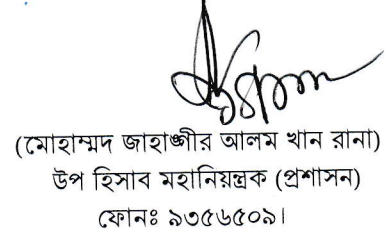 (মোহাম্মদ জাহাঙ্গীর আলম খান রানা)
উপ হিসাব মহানিয়ন্ত্রক (প্রশাসন)
ফোনঃ ৯৩৫৬৫০৯।